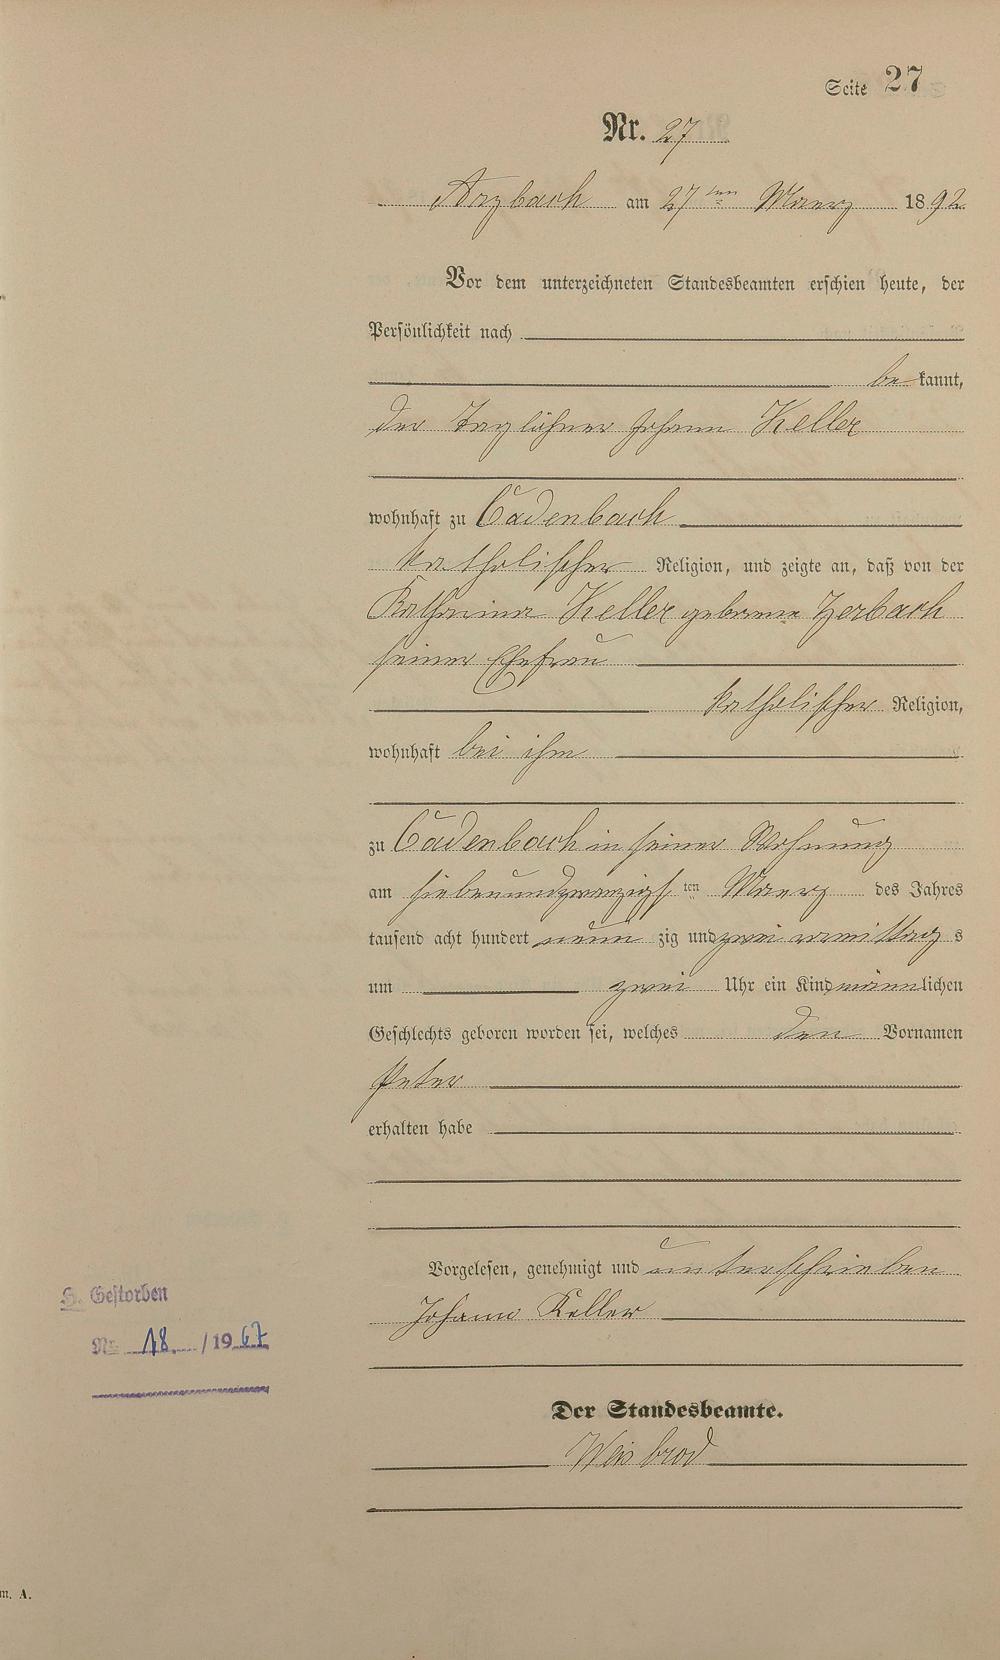 Seite 27
Nr. 27
Arzbach am 27ten Maerz 1892
Vor dem unterzeichneten Standesbeamten erschien heute, der
Persönlichkeit nach
be kannt,
der Taglöhner Johann Keller
wohnhaft zu Cadenbach
katholischer Religion, und zeigte an, daß von der
Katharina Keller geborene Zerbach
seiner Ehefrau
katholischer Religion,
wohnhaft bei ihm
zu Cadenbach in seiner Wohnung
am siebenundzwanzigsten Maerz des Jahres
tausend acht hundert neun zig und zwei vormittag s
um zwei Uhr ein Kind männlichen
Geschlechts geboren worden sei, welches den Vornamen
Peter
erhalten habe
Vorgelesen, genehmigt und unterschrieben
Johann Keller
Der Standesbeamte.
Weisbrod
H. Gestorben
Nr. 18. / 1967
m. A.